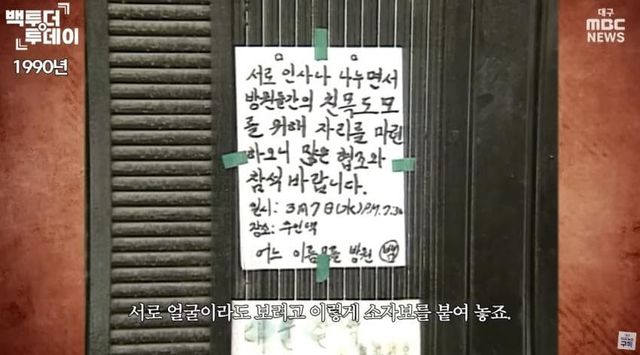 백투더
투데이
1990년
대구
MBC
NEWS
서로 인사나 나누면서
방원들간의 친목도모
를 위해 자리를 마련
하오니 많은 협조와
참석 바랍니다.
일시: 3月7日(水) P.M. 7.30
장소: 주인댁
어느 이름모를 방원
서로 얼굴이라도 보려고 이렇게 소자보를 붙여 놓죠.
구독